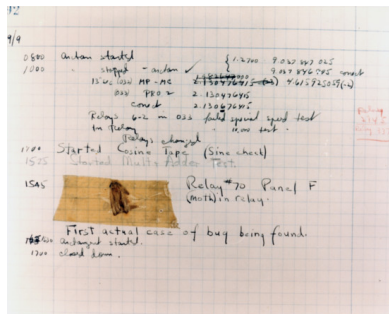 92
9/9
0800 antan started
1000 " stopped - antan ✓ { 1.2700 9.037 847 025
9.037 846 995 conect
13"uc (032) MP-MC 4.615925059(-2)
(033) PRO 2 2.130476415
conect 2.130676415
Relays 6-2 in 033 failed special speed test
in relay " 10.000 test.
Relays changed
1700 Started Cosine Tape (Sine check)
1525 Started Multi Adder Test.
1545 Relay #70 Panel F
(moth) in relay.
First actual case of bug being found.
antangent started.
1700 closed down.
Relay